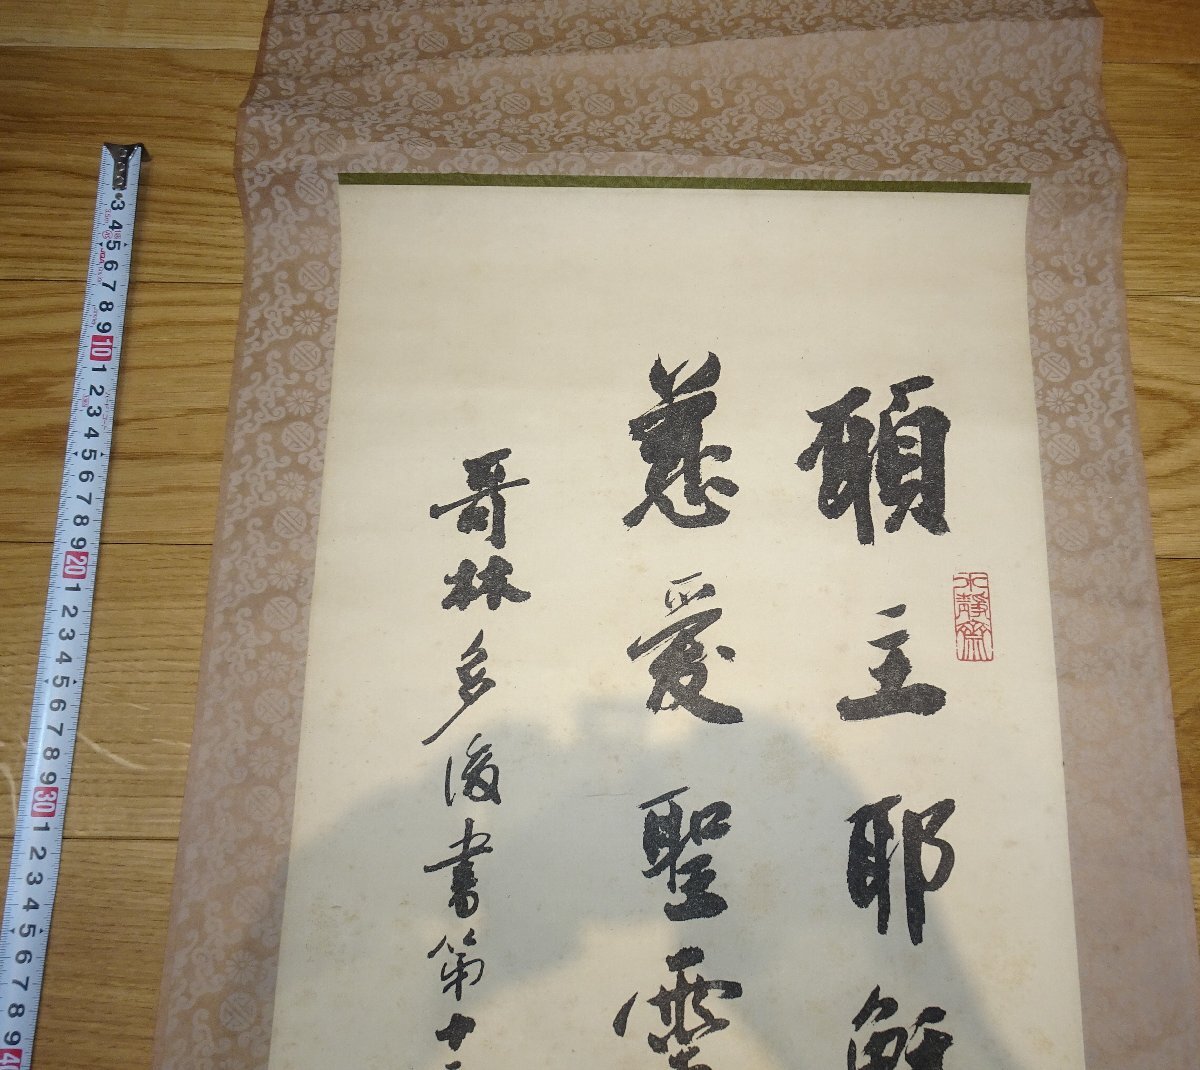 願主耶穌
慈愛聖靈
哥林多後書第十三
水靜齋
3 4 5 6 7 8 9 10 1 2 3 4 5 6 7 8 9 20 1 2 3 4 5 6 7 8 9 30 1 2 3 4 5 6 7 8 9 40